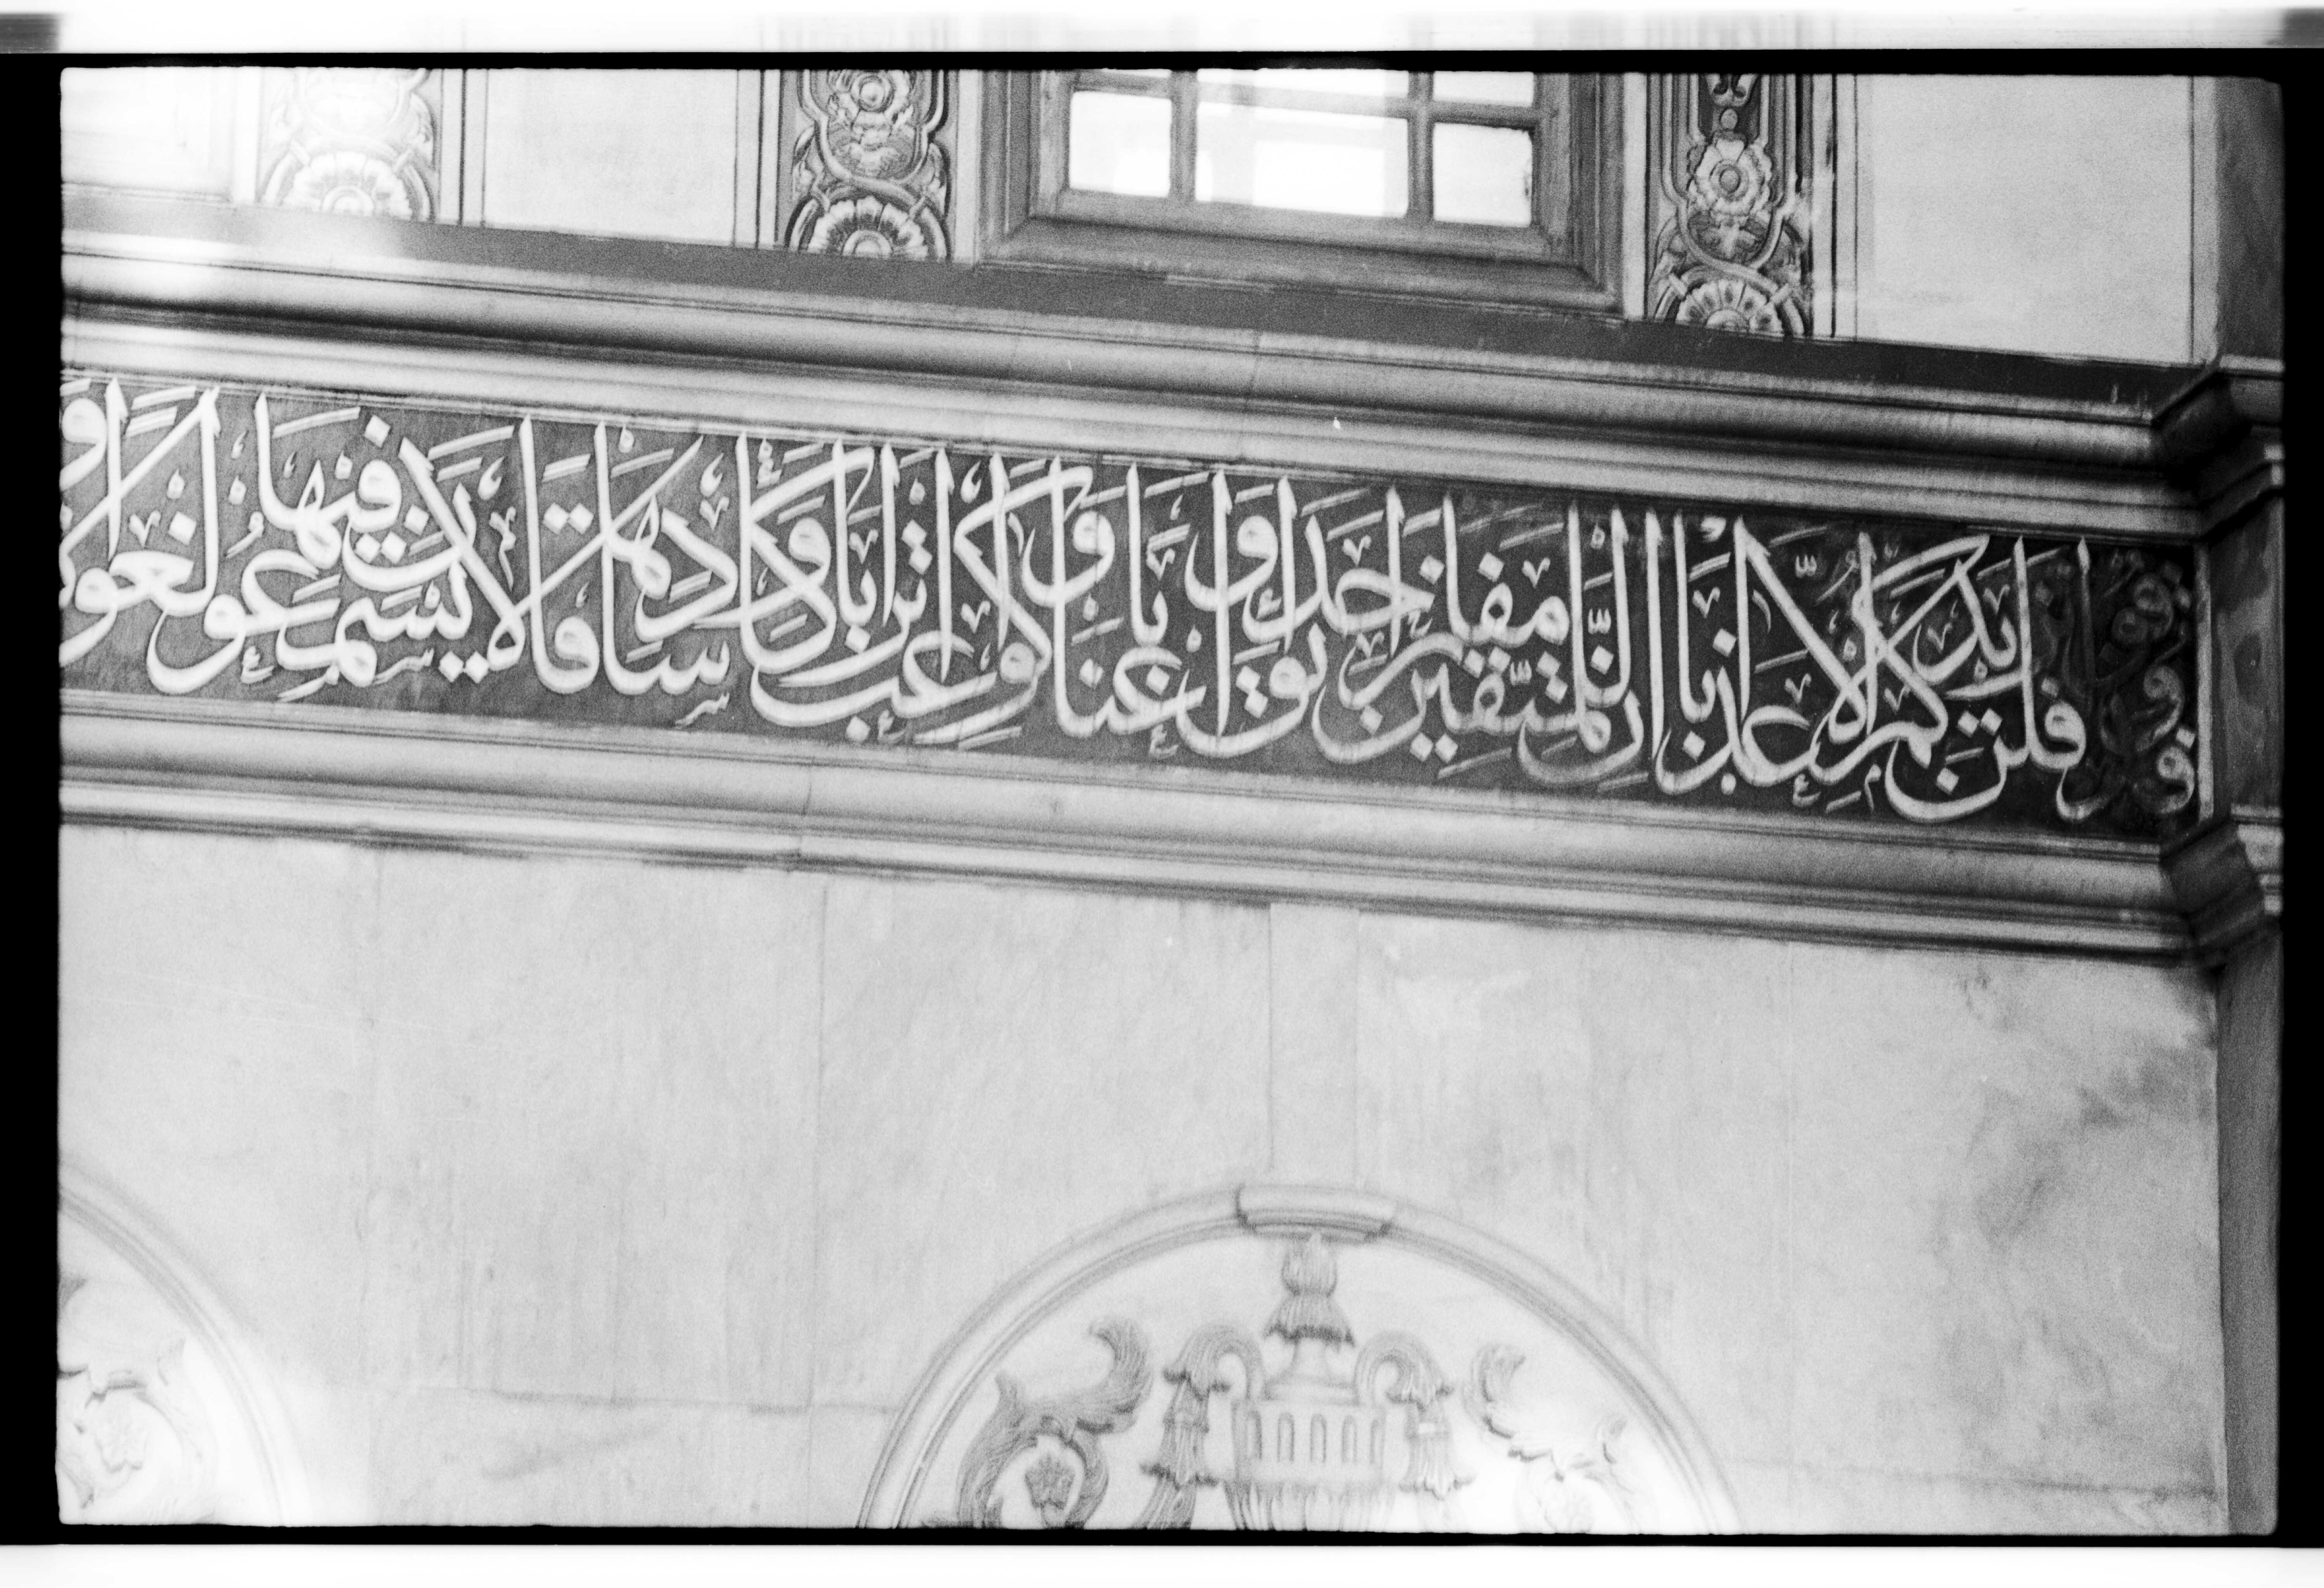 فذوقوا فلن نزيدكم الا عذابا ان للمتقين مفازا حدائق واعنابا وكواعب اترابا وكأسا دهاقا لا يسمعون فيها لغوا ولا